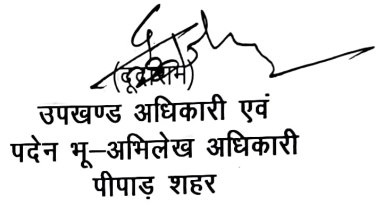 (दूदाराम)
उपखण्ड अधिकारी एवं
पदेन भू–अभिलेख अधिकारी
पीपाड़ शहर